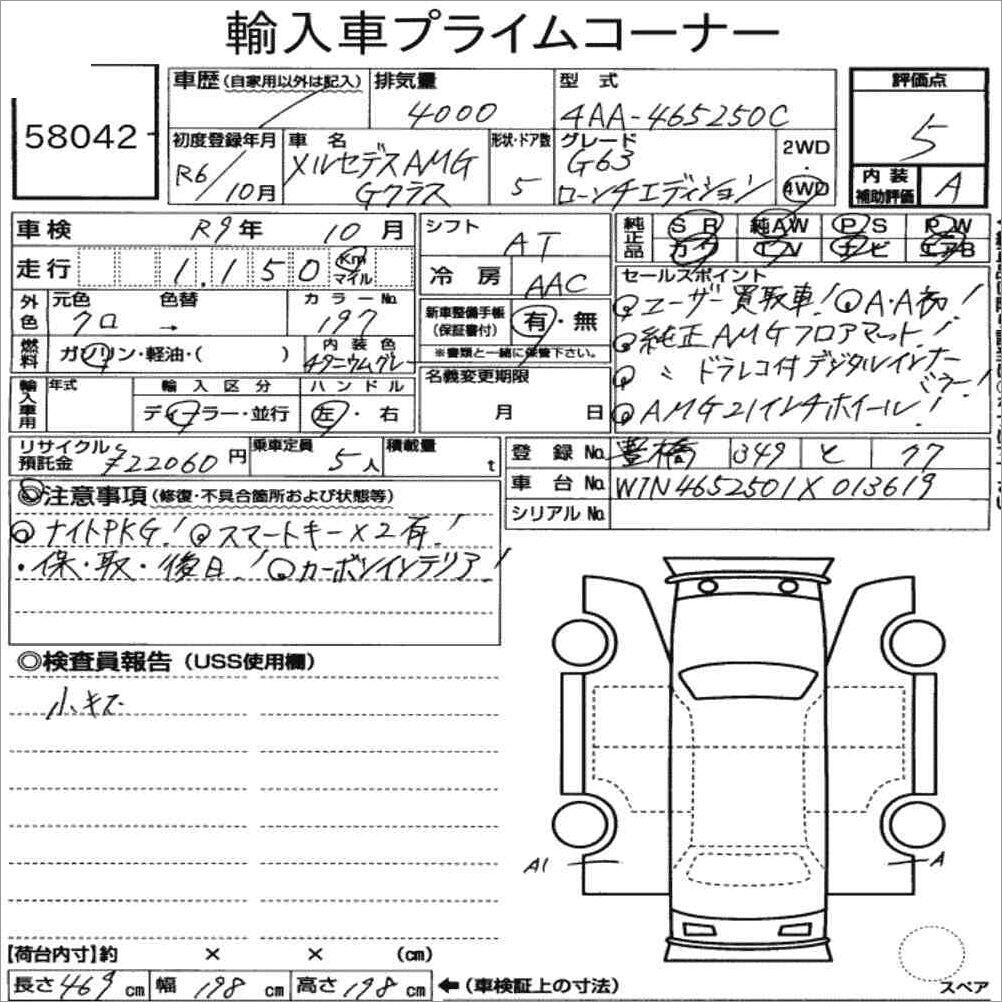 輸入車プライムコーナー
58042
車歴(自家用以外は記入) 排気量 4000
型式 4AA-465250C
評価点 5
初度登録年月 R6/10月
車名 メルセデスAMG Gクラス
形状・ドア数 5
グレード G63 ローンチエディション
2WD・4WD
内装補助評価 A
車検 R9年 10月
シフト AT
純正品 SR 純AW PS PW
カワ TV ナビ エアB
走行 1,150 Km マイル
冷房 AAC
セールスポイント
◎ユーザー買取車!◎A・A初!
◎純正AMGフロアマット!
◎〃ドラレコ付デジタルインナーミラー!
◎AMG21インチホイール!
外色 元色 クロ → 色替
カラーNo. 197
新車整備手帳(保証書付) 有・無
※書類と一緒に保管下さい。
燃料 ガソリン・軽油・( )
内装色 チタニウムグレー
輸入車用 年式 輸入区分 ディーラー・並行
ハンドル 左・右
名義変更期限 月 日
リサイクル預託金 ¥22060円
乗車定員 5人
積載量 t
登録No. 豊橋 349 と 77
車台No. W1N4652501X013619
シリアルNo.
◎注意事項(修復・不具合箇所および状態等)
◎ナイトPKG!◎スマートキー×2有!
・保・取・後日!◎カーボンインテリア!
◎検査員報告(USS使用欄)
小キズ
A1
A
【荷台内寸】約 × × (cm)
長さ469cm 幅198cm 高さ198cm ←(車検証上の寸法)
スペア